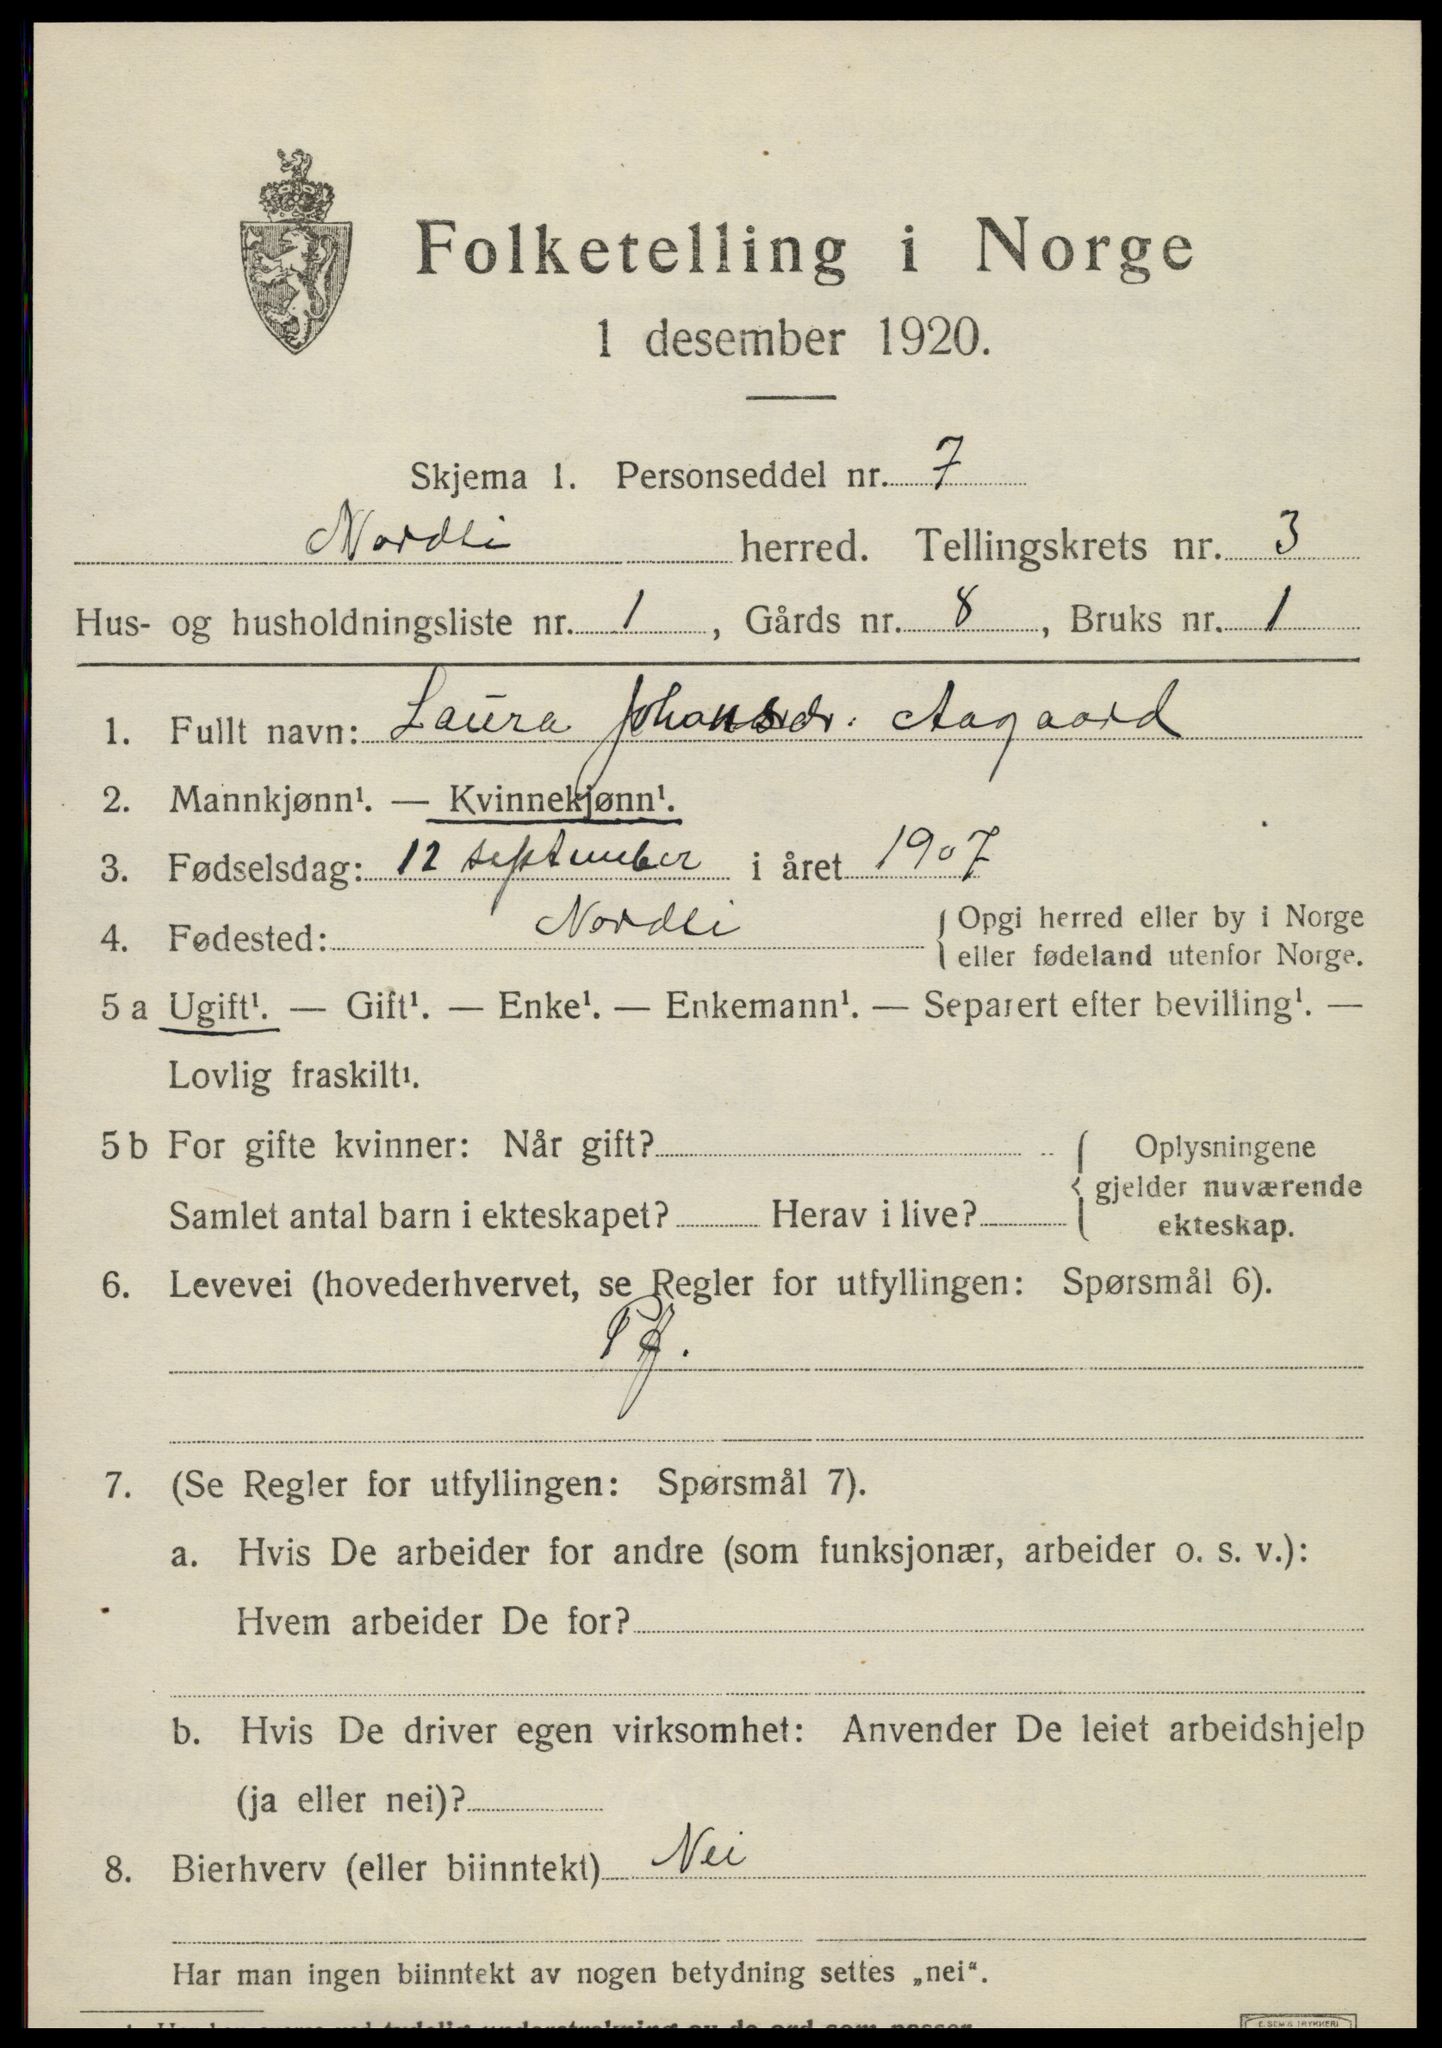 Folketelling i Norge
1 desember 1920.
Skjema 1. Personseddel nr. 7
Nordli herred. Tellingskrets nr. 3
Hus- og husholdningsliste nr. 1, Gårds nr. 8, Bruks nr. 1
1. Fullt navn: Laura Johansdr. Aagaard
2. Mannkjønn¹. — Kvinnekjønn¹.
3. Fødselsdag: 12 september i året 1907
4. Fødested: Nordli { Opgi herred eller by i Norge
eller fødeland utenfor Norge.
5 a Ugift¹. — Gift¹. — Enke¹. — Enkemann¹. — Separert efter bevilling¹. —
Lovlig fraskilt¹.
5 b For gifte kvinner: Når gift? { Oplysningene
gjelder nuværende
Samlet antal barn i ekteskapet? Herav i live? ekteskap.
6. Levevei (hovederhvervet, se Regler for utfyllingen: Spørsmål 6).
7. (Se Regler for utfyllingen: Spørsmål 7).
a. Hvis De arbeider for andre (som funksjonær, arbeider o. s. v.):
Hvem arbeider De for?
b. Hvis De driver egen virksomhet: Anvender De leiet arbeidshjelp
(ja eller nei)?
8. Bierhverv (eller biinntekt) Nei
Har man ingen biinntekt av nogen betydning settes „nei“.